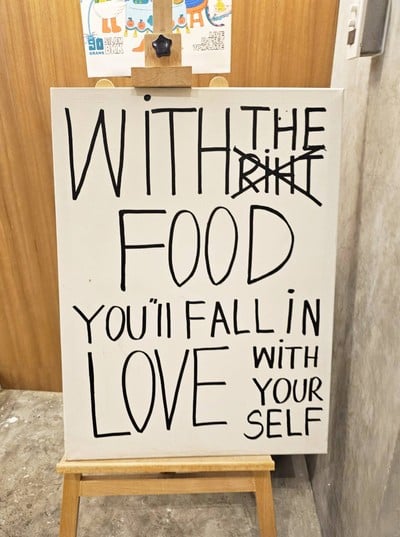 WiTH THE
RiHT
FOOD
YOU"ll FALL iN
LOVE WiTH
YOUR
SELF